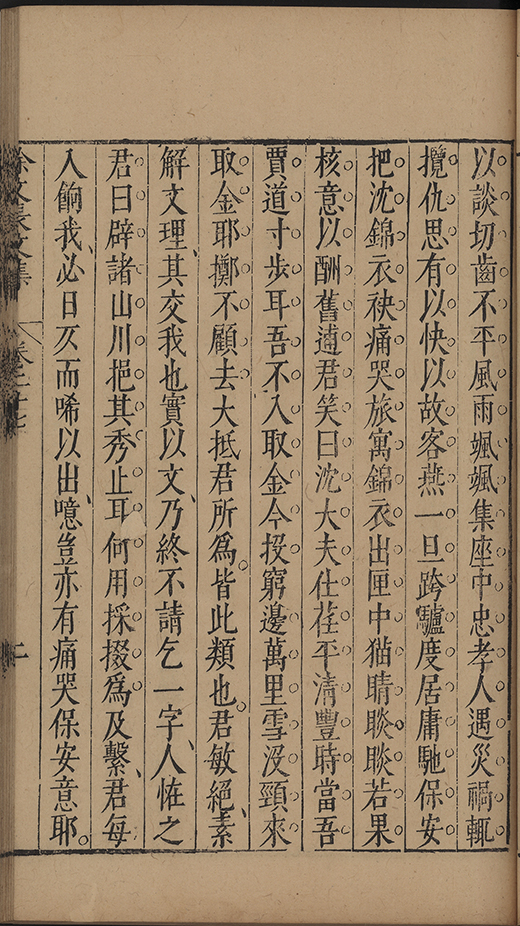 以談切齒不平風雨颯颯集座中忠孝人遇災禍輒
攬仇思有以快以故客燕一旦跨驢度居庸馳保安
把沈錦衣袂痛哭旅寓錦衣出匣中猫睛睒睒若果
核意以酬舊逋君笑曰沈大夫仕荏平清豐時當吾
賈道寸步耳吾不入取金今投窮邊萬里雪沒頸來
取金耶擲不顧去大抵君所爲。皆此類也。君敏絕、素
解文理、其交我也實以文、乃終不請乞一字、人恠之
君曰辟諸山川挹其秀止耳何用採掇爲及繫、君每
入餉我、必日仄而唏以出、噫豈亦有痛哭保安意耶。
徐文長文集
卷之二十七
二